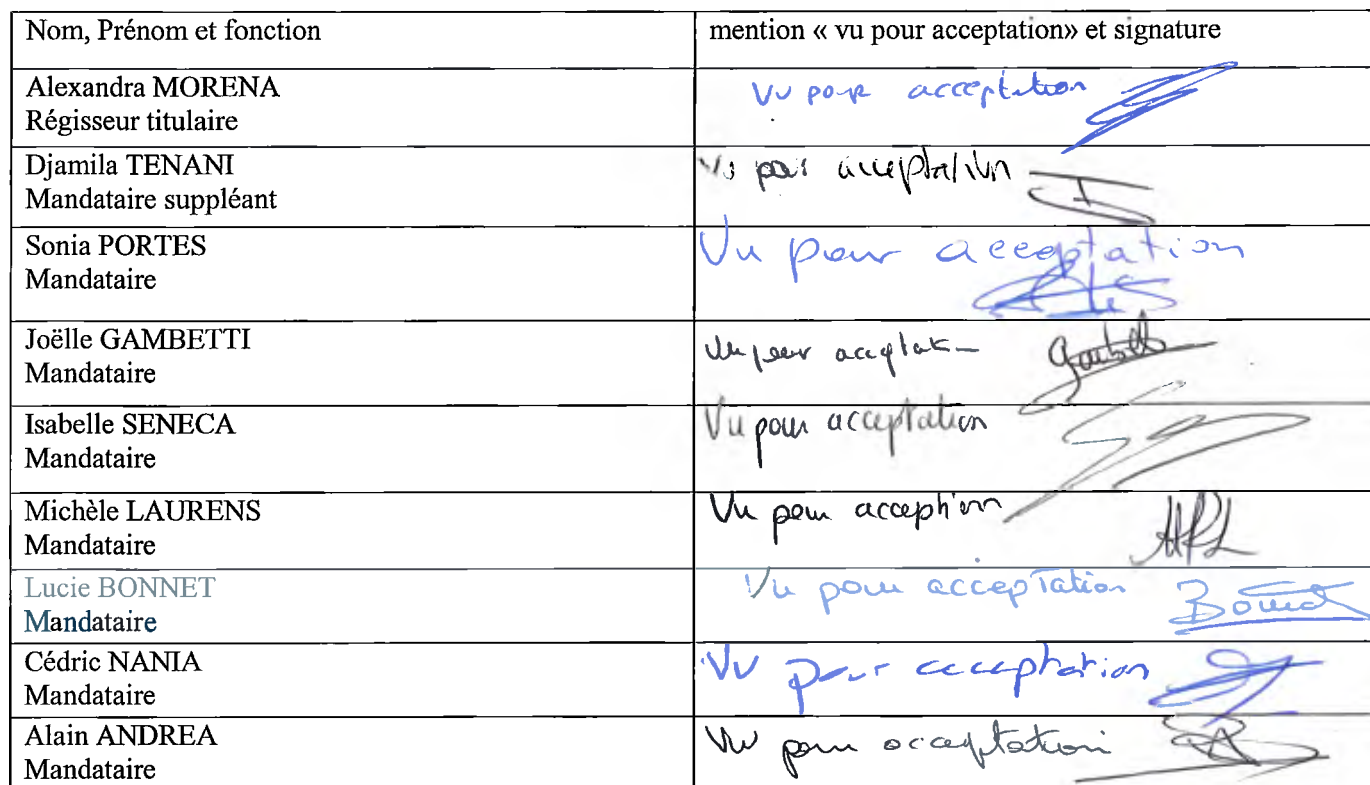 Nom, Prénom et fonction
mention « vu pour acceptation» et signature
Alexandra MORENA
Régisseur titulaire
Vu pour acceptation
Djamila TENANI
Mandataire suppléant
Vu pour acceptation
Sonia PORTES
Mandataire
Vu pour acceptation
Joëlle GAMBETTI
Mandataire
Vu pour acceptat
Isabelle SENECA
Mandataire
Vu pour acceptation
Michèle LAURENS
Mandataire
Vu pour acception
Lucie BONNET
Mandataire
Vu pour acceptation
Cédric NANIA
Mandataire
Vu pour acceptation
Alain ANDREA
Mandataire
Vu pour acceptation